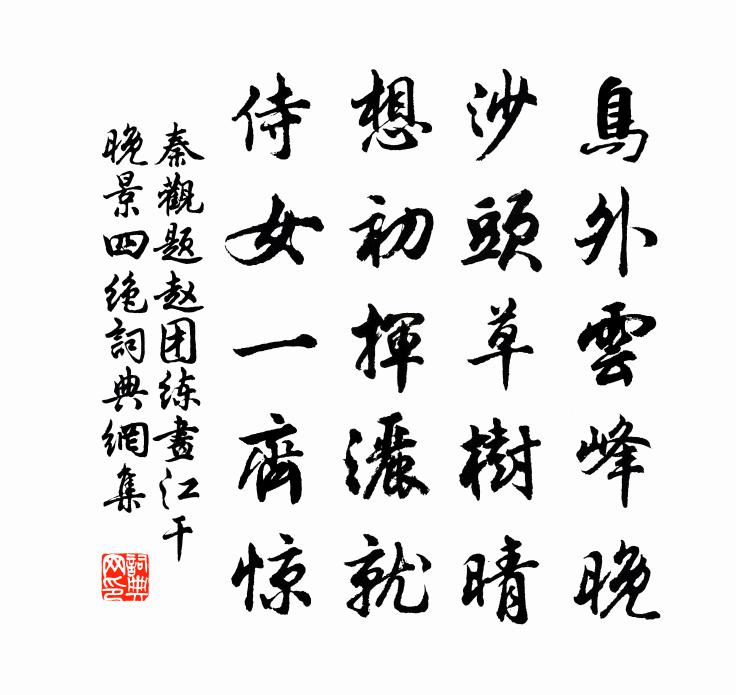 鳥外雲峰晚
沙頭草樹晴
想初揮灑就
侍女一齊惊
秦觀题赵团练畫江干
晚景四绝詞典網集
詞典
网印